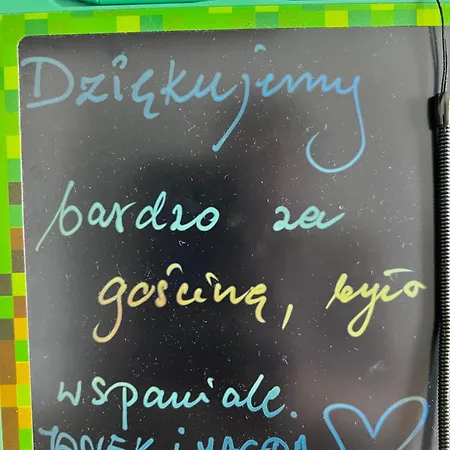 Dziękujemy
bardzo za
gościnę, było
wspaniale.
JANEK i MAGDA